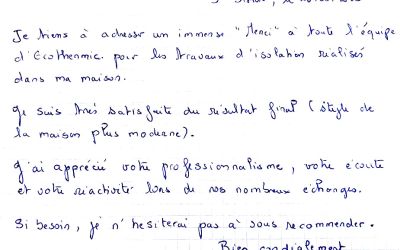 Je tiens à adresser un immense "Merci" à toute l'équipe
d'Ecothermic pour les travaux d'isolation réalisés
dans ma maison.
Je suis très satisfaite du résultat final (style de
la maison plus moderne).
J'ai apprécié votre professionnalisme, votre écoute
et votre réactivité lors de nos nombreux échanges.
Si besoin, je n'hésiterai pas à vous recommander.
Bien cordialement